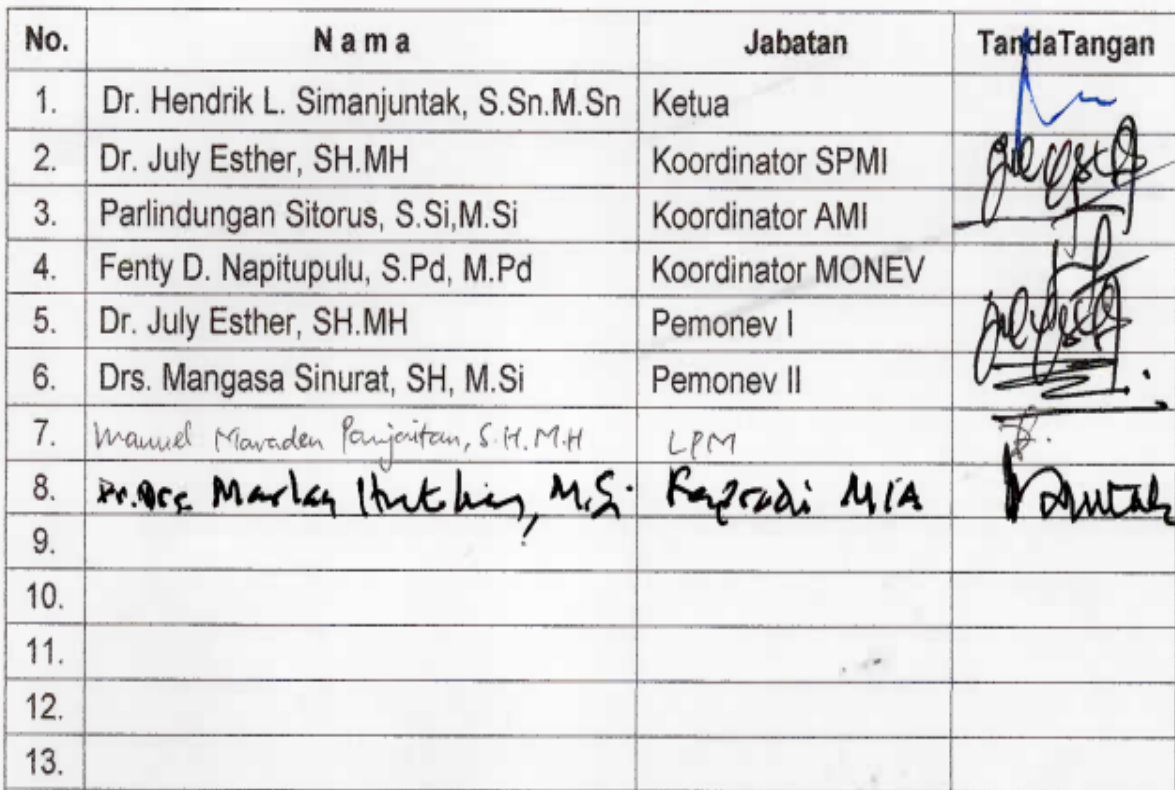 No. N a m a Jabatan TandaTangan
1. Dr. Hendrik L. Simanjuntak, S.Sn.M.Sn Ketua
2. Dr. July Esther, SH.MH Koordinator SPMI
3. Parlindungan Sitorus, S.Si,M.Si Koordinator AMI
4. Fenty D. Napitupulu, S.Pd, M.Pd Koordinator MONEV
5. Dr. July Esther, SH.MH Pemonev I
6. Drs. Mangasa Sinurat, SH, M.Si Pemonev II
7. Manuel Maraden Panjaitan, S.H.M.H LPM
8. Dr. Drs. M.Si. MIA
9.
10.
11.
12.
13.